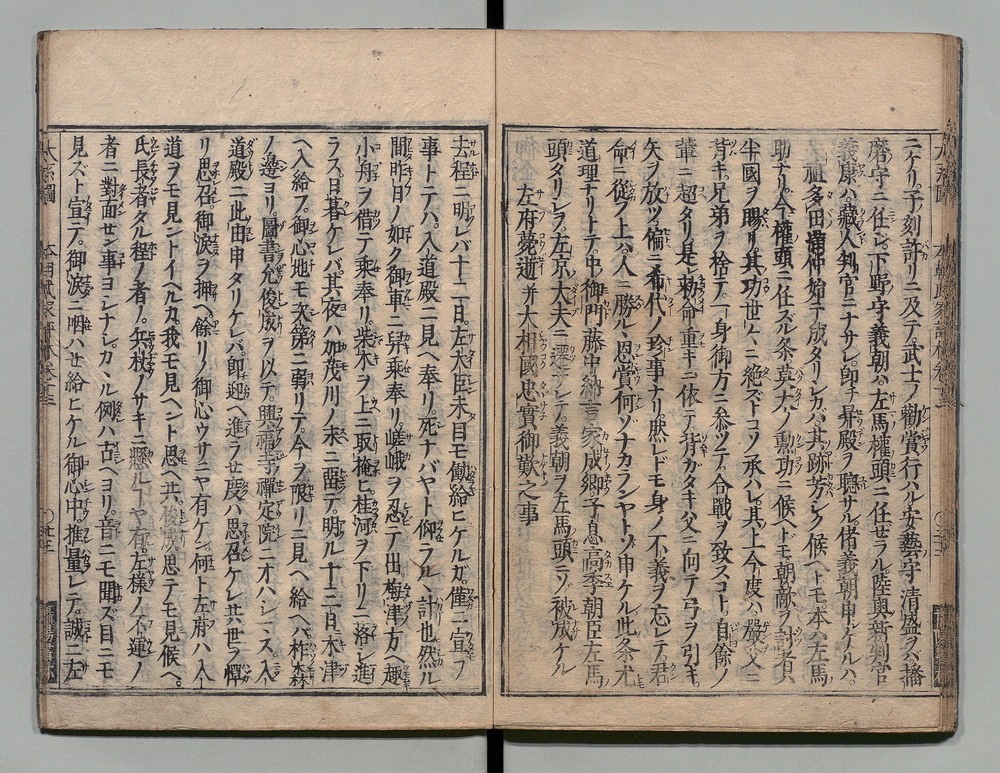 ニケリ。子刻許リニ及テ。武士ノ勸賞行ハル安藝守清盛ヲバ播
磨守ニ任シ。下野守義朝ハ左馬權頭ニ任セラル陸奥新判官
義康ハ。藏人判官ニナサレ即チ昇殿ヲ聽サル。偖義朝申ケルハ。
祖多田滿仲始テ成タリシカバ。其跡芳シク候ヘトモ。本ハ左馬
助ナリ。今權頭ニ任ズル条莫大ノ勲功ニ候ヘドモ。朝敵ヲ討者ハ
半國ヲ賜リ。其功世々ニ絶ズトコソ承ハレ。其上今度ハ嚴父ニ
背キ。兄弟ヲ捨テ。一身御方ニ參ツテ。合戰ヲ致スコト。自餘ノ
輩ニ超タリ。是レ勅命重キニ依テ。背ガタキ父ニ向テ弓ヲ引キ。
矢ヲ放ツ。偏ニ希代ノ珍事ナリ。然レドモ身ノ不義ヲ忘レテ。君
命ニ從フ上ハ。人ニ勝ルヽ恩賞何ゾナカランヤトゾ申ケル此条尤
道理ナリトテ。中御門藤中納言家成卿ノ子息高季朝臣左馬
頭タリシヲ。左京大夫ニ遷シテ。義朝ヲ左馬頭ニゾ被成ケル
左府薨逝并大相國忠實御歎之事
去程ニ明レバ十二日。左大臣未目モ働給ヒケルガ。僅ニ宣フ
事トテハ。入道殿ニ見ヘ奉リ。死ナバヤト仰ラルヽ計也然ル
間昨日ノ如ク御車ニ舁乘奉リ。嵯峨ヲ忍テ出梅津方ヘ趣
小舟ヲ借テ乘奉リ。柴木ヲ上ニ取掩ヒ。桂河ヲ下リニ落シ進
ラス。日暮ケレバ其夜ハ加茂川ノ末ニ留テ。明ル十三日木津
ヘ入給フ。御心地モ次第ニ弱リテ。今ヲ限リニ見ヘ給ヘバ。柞森
ノ邊ヨリ。圖書允俊成ヲ以テ。興福寺ノ禪定院ニオハシマス入
道殿ニ此由申タリケレバ。即迎ヘ進ラセ度ハ思召ケレ共世ヲ憚
リ思召。御涙ヲ押ヘ。餘リノ御心ウサニヤ有ケン。何ト左府ハ入
道ヲモ見ントイヘルカ。我モ見ヘント思ヘ共。俊成思テモ見候ヘ。
氏長者タル程ノ者ノ。兵杖ノサキニ懸ル丁ヤ有。左樣ノ不運ノ
者ニ對面セン事ヨシナシ。カヽル例ハ古ヘヨリ。音ニモ聞ズ目ニモ
見ズト宣テ。御涙ニ咽ハセ給ヒケル御心中。推量レテ。誠ニ左